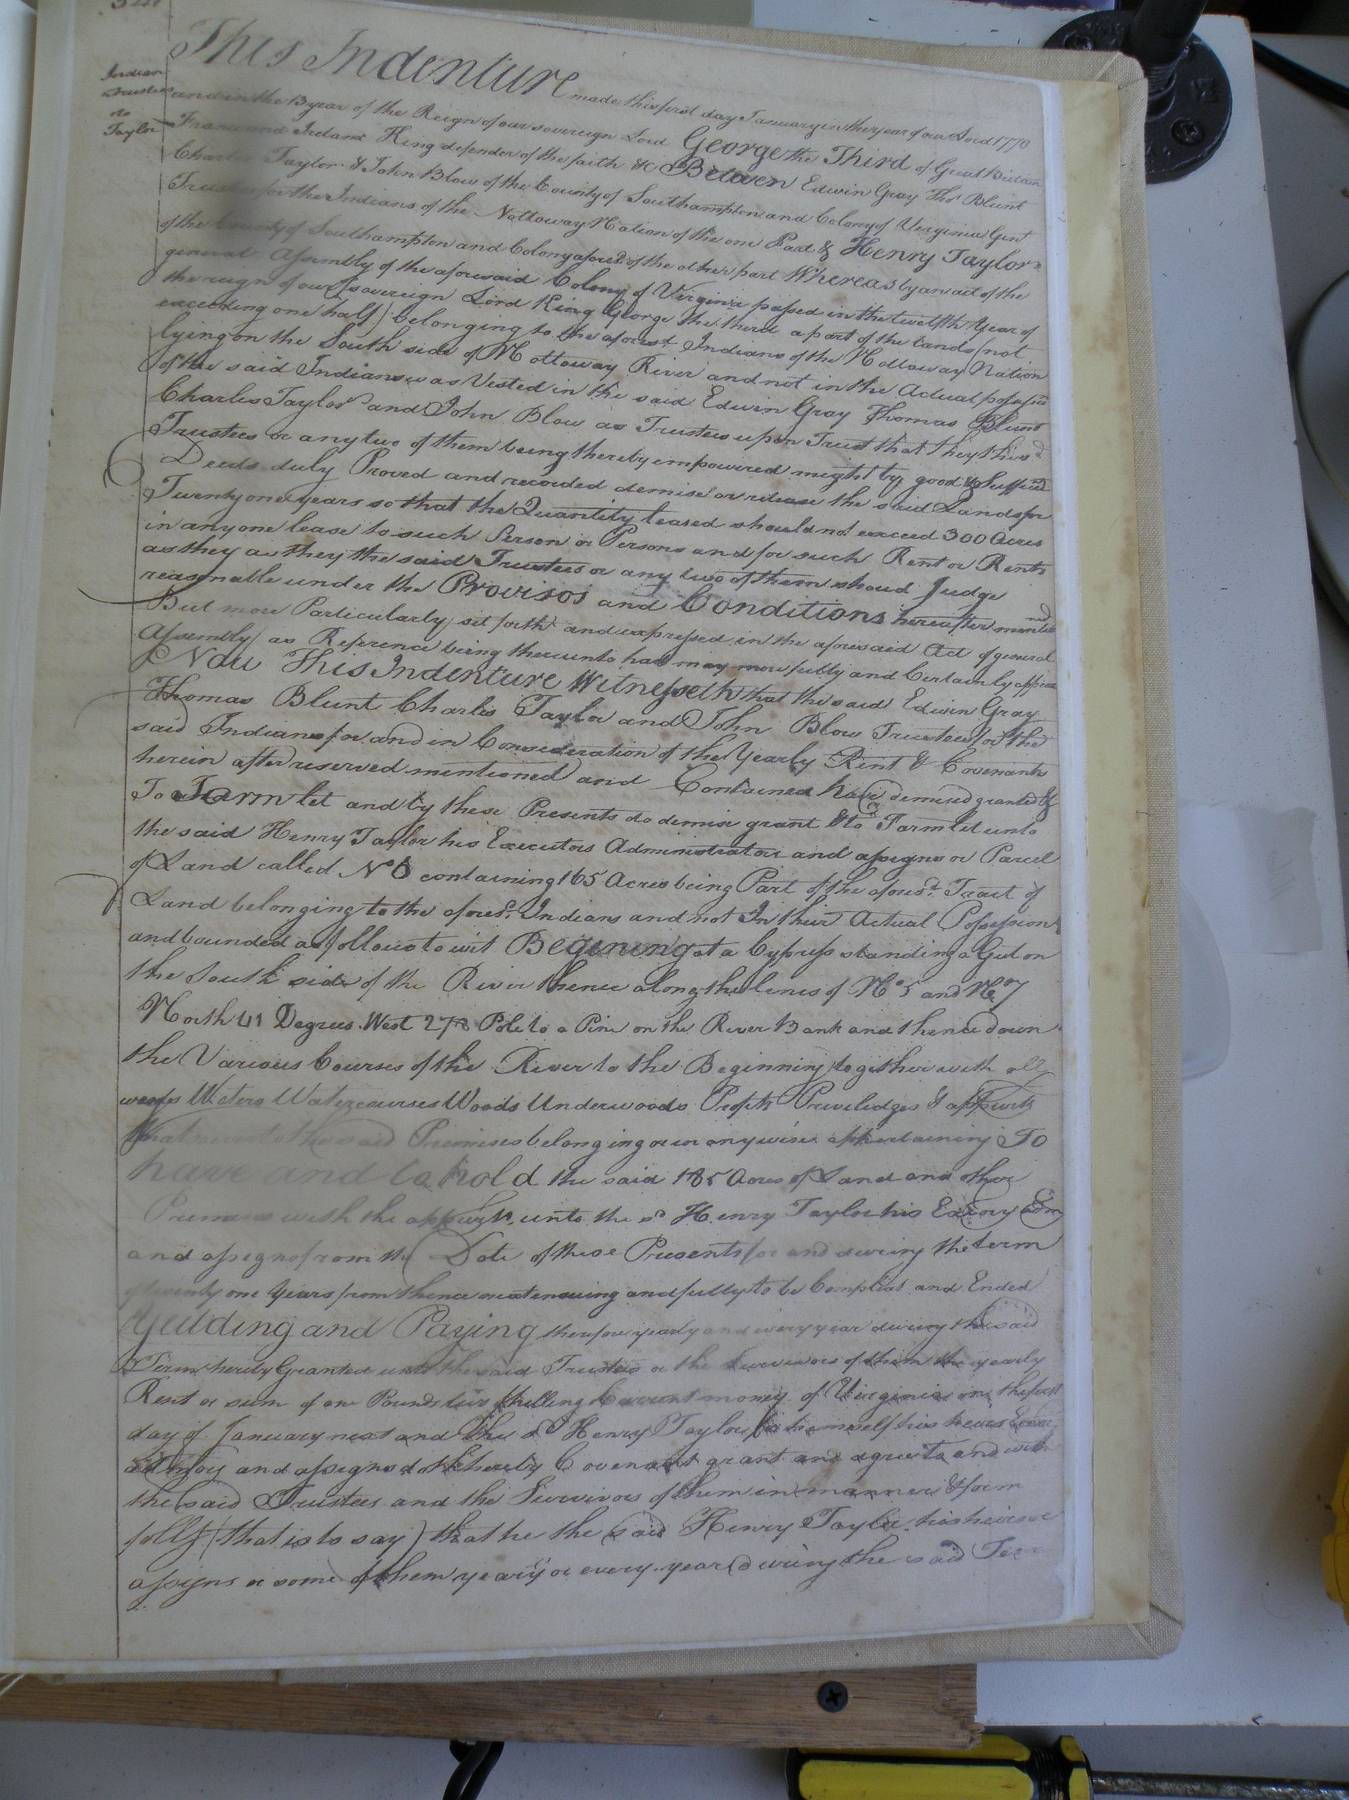 Indian
Trustees
to
Taylor
This Indenture made this first day January in the year of our Lord 1770
and in the 13 year of the Reign of our sovereign Lord George the Third of Great Britain
France and Ireland King defender of the faith &c Between Edwin Gray Thos Blunt
Charles Taylor & John Blow of the County of Southampton and Colony of Virginia Gent
Trustees for the Indians of the Nottoway Nation of the one Part & Henry Taylor
of the County of Southampton and Colony aforesd of the other part Whereas by an act of the
general Assembly of the aforesaid Colony of Virginia passed in the twelfth Year of
the reign of our sovereign Lord King George the third a part of the lands (not
exceeding one half) belonging to the aforesd Indians of the Nottoway Nation
lying on the South side of Nottoway River and not in the Actual
of the said Indians was Vested in the said Edwin Gray Thomas Blunt
Charles Taylor and John Blow as Trustees upon Trust that they the sd
Trustees or any two of them being thereby empowered might by good &
Deeds duly Proved and recorded demise or release the said Lands for
Twenty one years so that the Quantity leased should not exceed 300 Acres
in any one lease to such Person or Persons and for such Rent or Rents
as they as they the said Trustees or any two of them should Judge
reasonable under the Provisos and Conditions hereafter
But more Particularly set forth and expressed in the aforesaid Act of general
Assembly as Reference being thereunto had may more fully and Certainly appear
Now This Indenture Witnesseth that the said Edwin Gray
Thomas Blunt Charles Taylor and John Blow Trustees for the
said Indians for and in Consideration of the Yearly Rent & Covenants
herein after reserved mentioned and Contained have demised granted &
To Farm let and by these Presents do demise grant & to Farm let unto
the said Henry Taylor his Executors Administrators and assigns or Parcel
of Land called No 6 containing 165 Acres being Part of the aforesd Tract of
Land belonging to the aforesd Indians and not In their Actual Possession
and bounded as follows to wit Begining at a Cypress standing a Gut on
the South side of the River thence along the lines of No 5 and No 7
North 41 Degrees West 278 Pole to a Pine on the River Bank and thence down
the Various Courses of the River to the Beginning together with all
ways Waters Watercourses Woods Underwoods Profits Privelidges &
the said Premises belonging or in anywise appertaining To
have and to hold the said 165 Acres of Land and other
Premises with the unto the sd Henry Taylor his
and assigns from the Date of these Presents for and during the term
of twenty one Years from thence next ensuing and fully to be Compleat and Ended
Yeilding and Paying therefore yearly and every year during the said
Term hereby Granted unto the said Trustees or the Survivors of them the yearly
Rent or sum of one Pound shilling Current money of Virginia on the first
day of January next and the sd Henry Taylor for himself his heirs
and assigns doth hereby Covenant grant and agree to and with
the said Trustees and the Survivors of them in manner & form
(that is to say) that he the said Henry Taylor his heirs or
assigns or some of them yearly or every year during the said